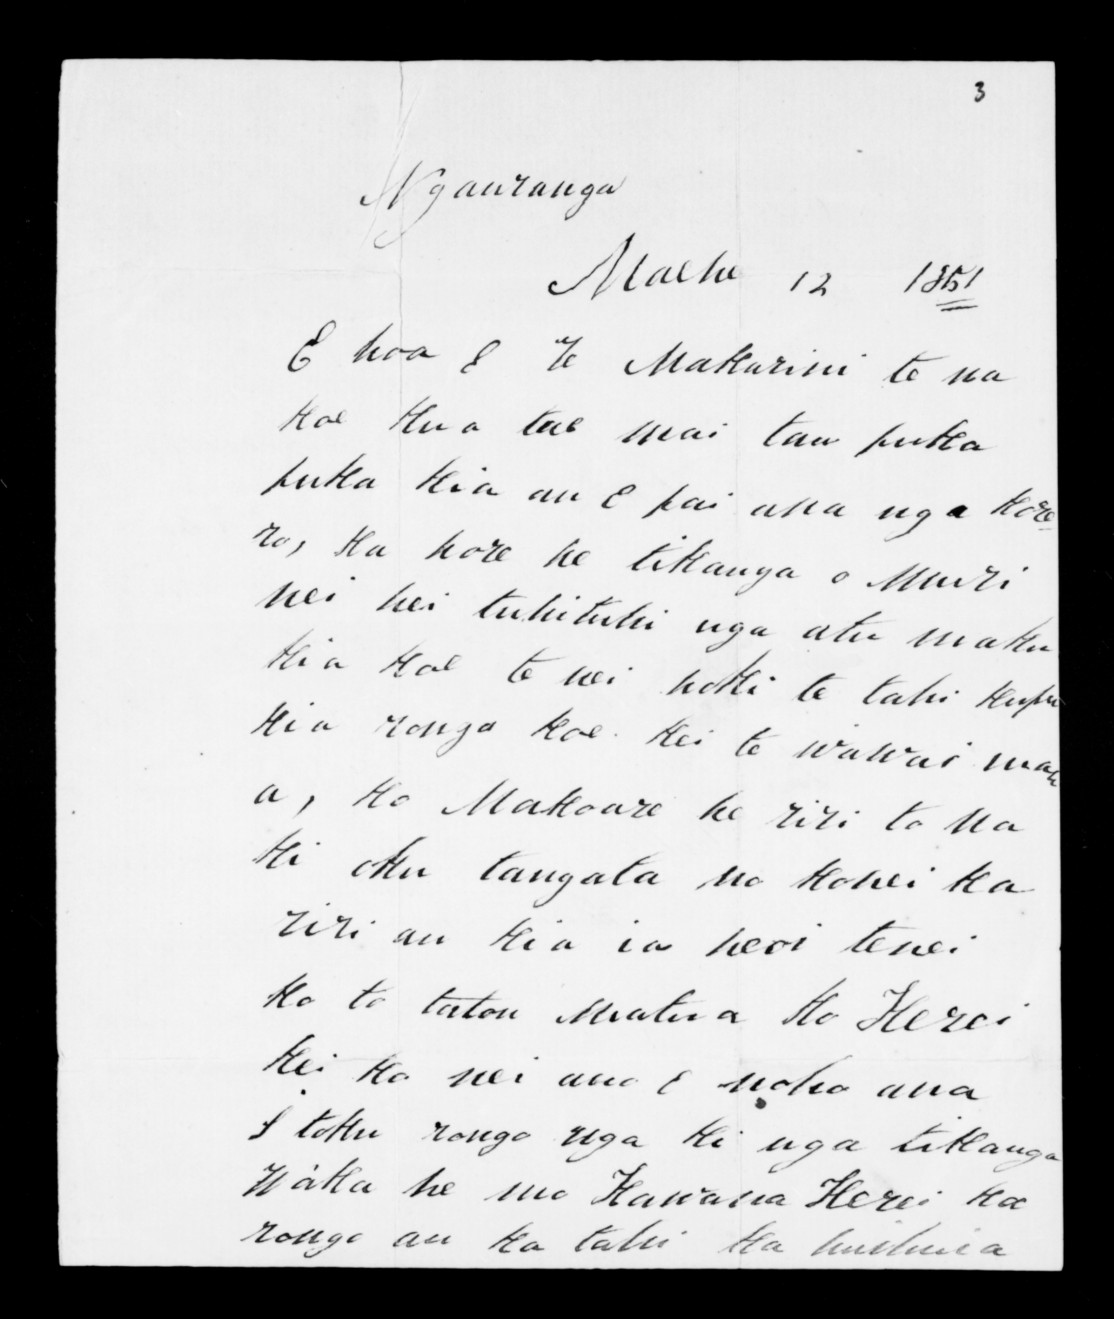 3
Ngauranga
Maehe 12 1851
E hoa E Te Makarini te na
koe Kua tae mai tau puka
puka kia au E pai ana nga kore
ro, Ka hore he tikanga o Muri
nei hei tuhituhi nga atu maku
kia koe te nei hoki te tahi kupu
kia rongo koe kei te wawai mak
a, ko Makoare he riri to Na
ki oku tangata no konei ka
riri au kia ia heoi tenei
ko to tatou Matua ko Herei
kei ko nei ano E noho ana
I toku rongo nga ki nga tikanga
waka he mo Kawana Herei ka
rongo au ka tahi ka huihuia